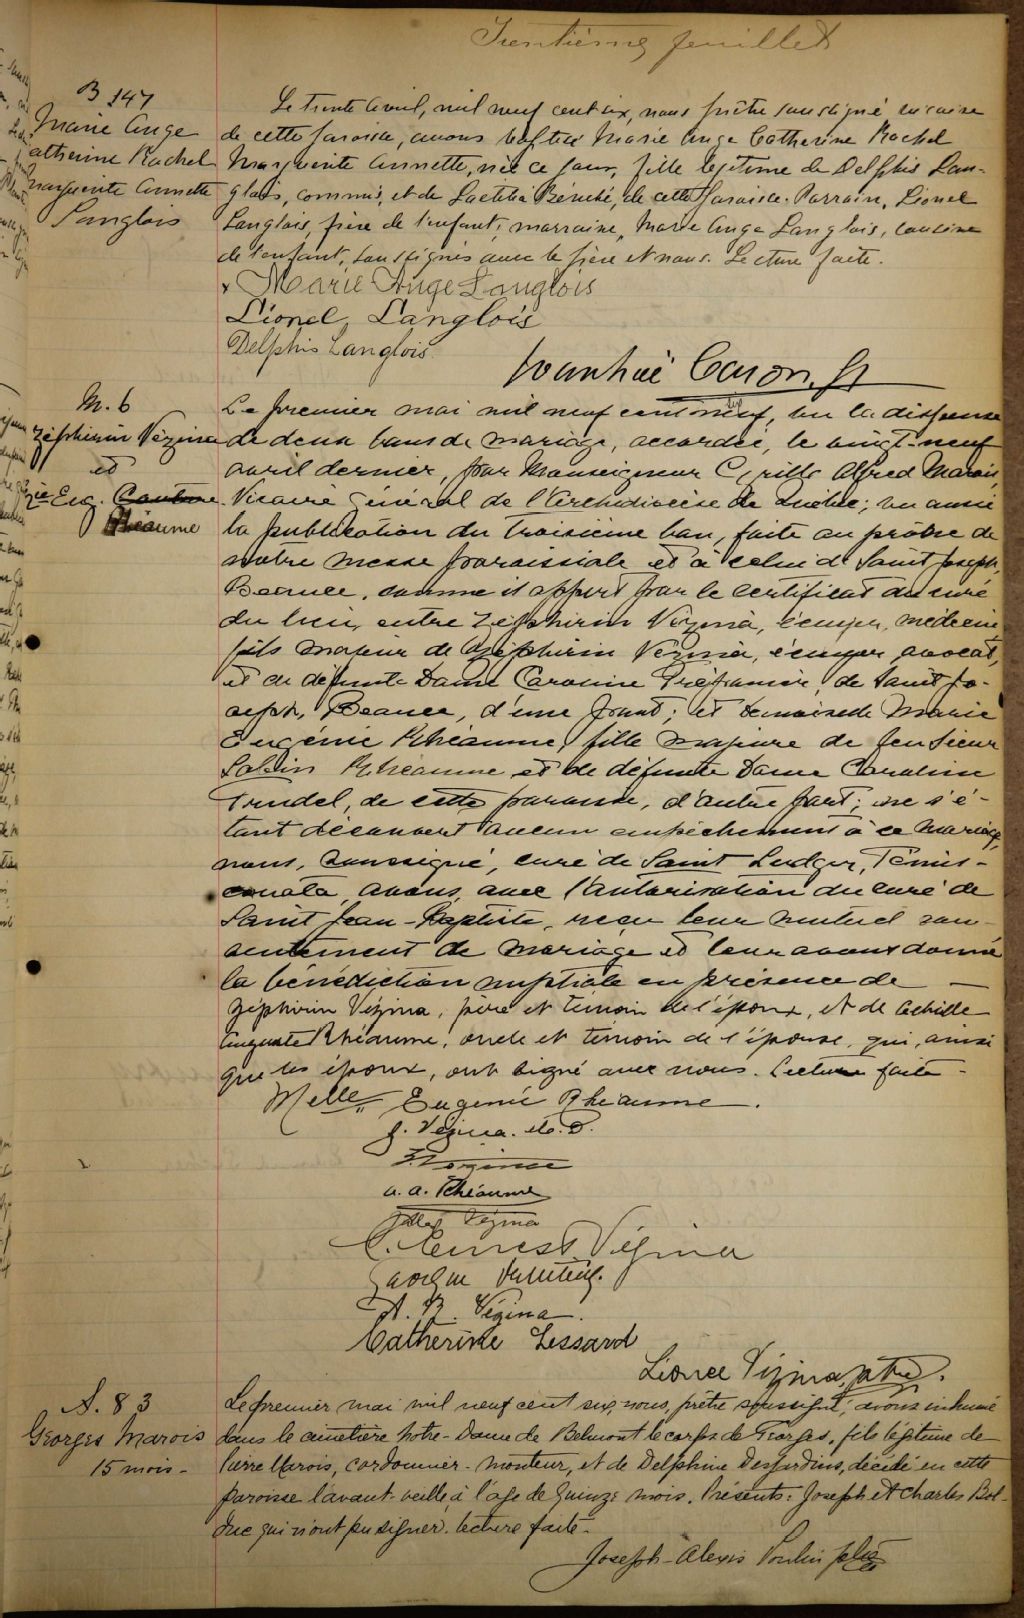 Trentième feuillet
B 147
Marie Ange
Catherine Rachel
Marguerite Annette
Langlois
Le trente avril, mil neuf cent six, nous prêtre soussigné vicaire
de cette paroisse, avons baptisé Marie Ange Catherine Rachel
Marguerite Annette, née ce jour, fille légitime de Delphis Lan-
glois, commis, et de Laetitia Bérubé, de cette paroisse. Parrain, Lionel
Langlois, frère de l'enfant; marraine, Marie Ange Langlois, cousine
de l'enfant, soussignés avec le père et nous. Lecture faite.
Marie Ange Langlois
Lionel Langlois
Delphis Langlois
Ivanhoë Caron, ptr
M. 6
Zéphirin Vézina
et
Eug.
Rhéaume
Le premier mai mil neuf cent six, vu la dispense
de deux bans de mariage, accordée, le vingt-neuf
avril dernier, par Monseigneur Cyrille Alfred Marois,
Vicaire Général de l'Archidiocèse de Québec; vu aussi
la publication du troisième ban, faite au prône de
notre messe paroissiale et à celui de Saint Joseph,
Beauce, comme il appert par le certificat du curé
du lieu, entre Zéphirin Vézina, écuyer, médecin
fils majeur de Zéphirin Vézina, écuyer avocat,
et de défunte Dame Caroline Préfontaine, de Saint Jo-
seph, Beauce, d'une part; et demoiselle Marie
Eugénie Rhéaume, fille majeure de feu Sieur
Sabin Rhéaume et de défunte Dame Caroline
Trudel, de cette paroisse, d'autre part; ne s'é-
tant découvert aucun empêchement à ce mariage,
nous, soussigné, curé de Saint Ludger, Témis-
couata, avons, avec l'autorisation du curé de
Saint Jean-Baptiste, reçu leur mutuel con-
sentement de mariage et leur avons donné
la bénédiction nuptiale en présence de
Zéphirin Vézina, père et témoin de l'époux, et de Achille
Auguste Rhéaume, oncle et témoin de l'épouse, qui, ainsi
que les époux, ont signé avec nous. Lecture faite.
Melle Eugénie Rhéaume.
Z. Vézina. M. D.
Z. Vézina
A. A. Rhéaume
Vézina
Ernest Vézina
A. R. Vézina.
Catherine Lessard
Lionel Vézina ptre.
S. 83
Georges Marois
15 mois -
Le premier mai mil neuf cent six, nous, prêtre soussigné, avons inhumé
dans le cimetière Notre-Dame de Belmont le corps de Georges, fils légitime de
Pierre Marois, cordonnier-monteur, et de Delphine Desjardins, décédé en cette
paroisse l'avant-veille, à l'âge de quinze mois. Présents: Joseph et Charles Bol-
duc qui n'ont pu signer. Lecture faite.
Joseph-Alexis Poulin ptre